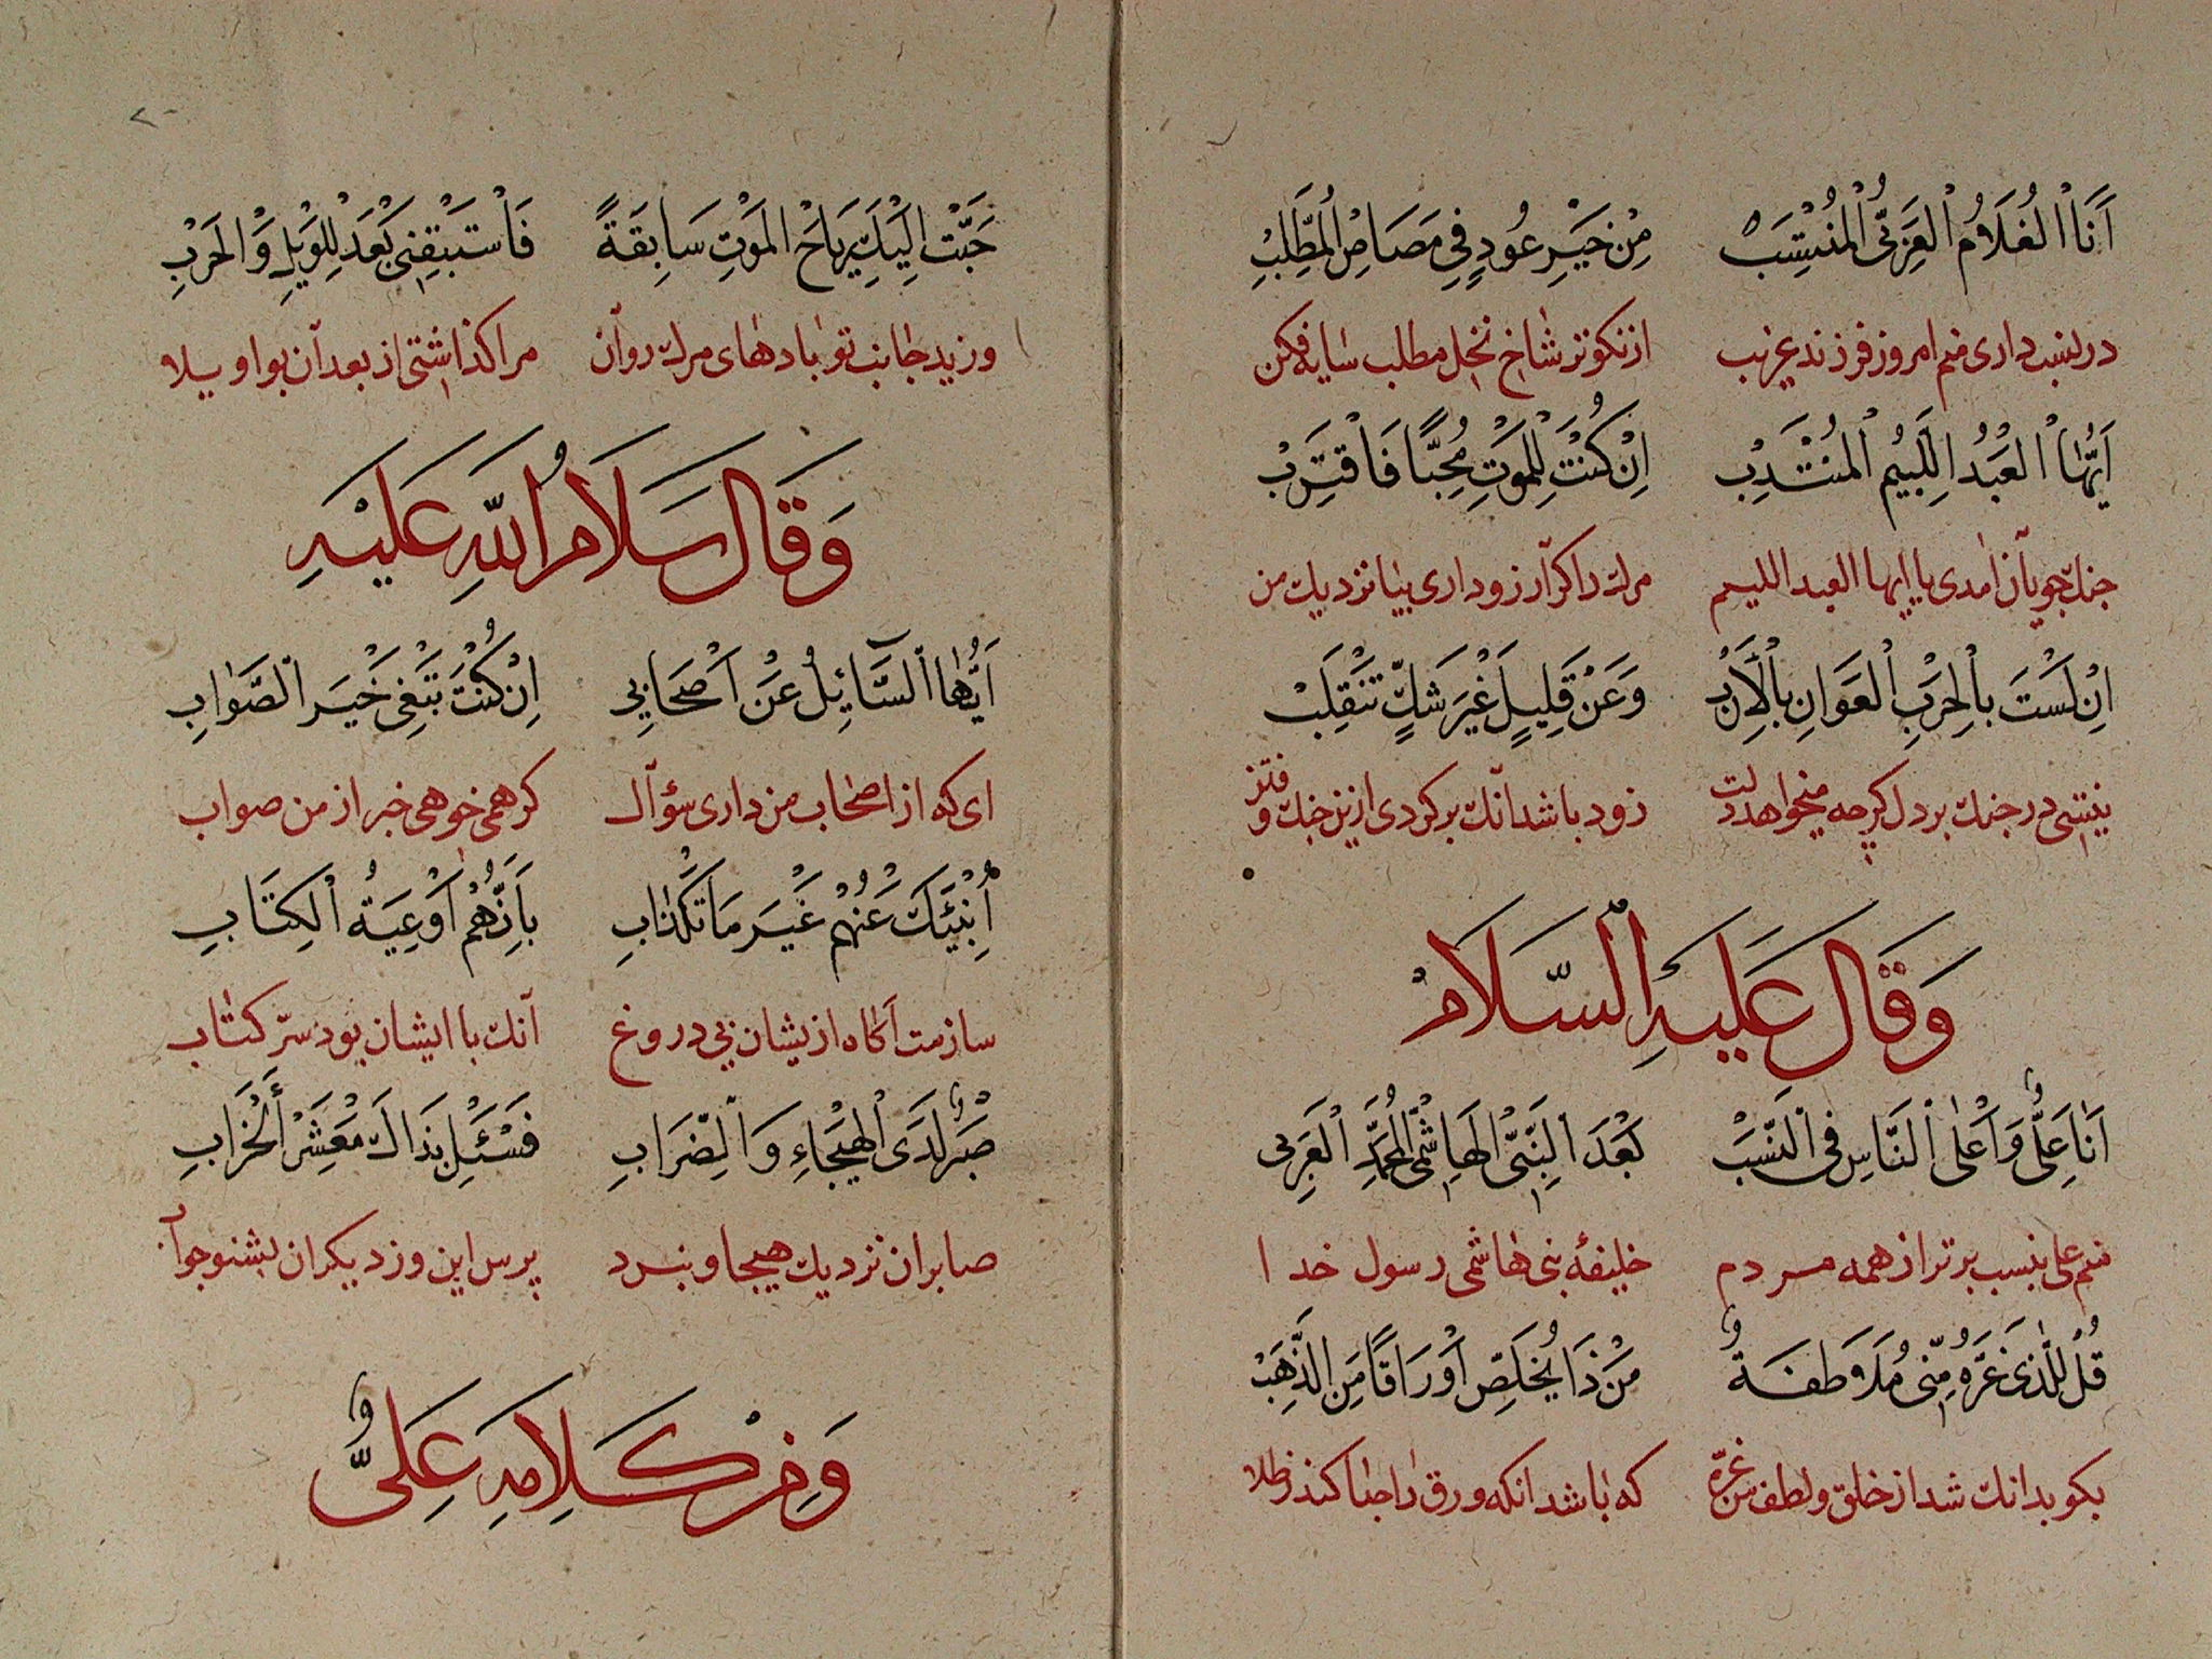 أَنَا الْغُلَامُ الْعَرَبِيُّ الْمُنْتَسِبْ مِنْ خَيْرِ عُودٍ فِي مَصَاصِ الْمُطَّلِبِ
در نسب داری منم امروز فرزند عرب از نکوتر شاخ نخل مطلب سایه فکن
اَيُّهَا الْعَبْدُ اللَّئِيمُ الْمُنْتَدِبْ اِنْ كُنْتَ لِلْمَوْتِ مُحِبًّا فَاقْتَرِبْ
جنك جویان آمدی یا ایها العبد اللیم مرك را کر آرزو داری بیا نزدیك من
اِنْ لَسْتَ بِالْحَرْبِ الْعَوَانِ بِالْاَرِبْ وَعَنْ قَلِيلٍ غَيْرَ شَكٍّ تَنْقَلِبْ
نیستی در جنك بر دل کرچه میخواهد دلت زود باشد آنك برکردی ازین جنك و فتن
وَقَالَ عَلَيْهِ السَّلَامْ
اَنَا عَلِيٌّ وَاَعْلَى النَّاسِ فِي النَّسَبْ بَعْدَ النَّبِيِّ الْهَاشِمِيِّ الْمُحَمَّدِ الْعَرَبِي
منم علی بنسب برتر از همه مردم خلیفهٔ بنی هاشمی رسول خدا
قُلْ لِلَّذِي غَرَّهُ مِنِّي مُلَاطَفَةٌ مَنْ ذَا يُخَلِّصُ اَوْرَاقًا مِنَ الذَّهَبْ
بکو بدانك شد از خلق و لطف من غرّه که باشد آنکه ورق را جدا کند ز طلا
هَبَّتْ اِلَيْكَ رِيَاحُ الْمَوْتِ سَابِقَةً فَاسْتَبْقِنِي بَعْدَ لِلْوَيْلِ وَالْحَرْبِ
وزید جانب تو بادهای مرك روان مرا کذاشتی از بعد آن بواویلا
وَقَالَ سَلَامُ اللّٰهِ عَلَيْهِ
اَيُّهَا السَّائِلُ عَنْ اَصْحَابِي اِنْ كُنْتَ تَبْغِي خَيْرَ الصَّوَابِ
ای که از اصحاب من داری سؤال کر همی خوهی خبر از من صواب
اُنْبِئْكَ عَنْهُمْ غَيْرَ مَا تَكْذَابِ بِاَنَّهُمْ اَوْعِيَةُ الْكِتَابِ
سازمت آکاه ازیشان بی دروغ آنك با ایشان بود سرّ کتاب
صُبْرٌ لَدَى الْهَيْجَاءِ وَالضِّرَابِ فَسْئَلْ بِذَاكَ مَعْشَرَ الْخَرَابِ
صابران نزدیك هیجا و نبرد پرس این و ز دیکران بشنو جوآب
وَمِنْ كَلَامِهِ عَلِيٌّ